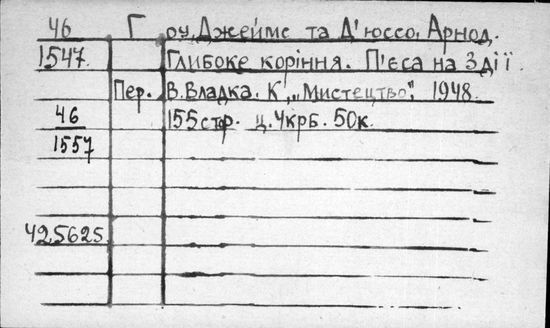 46 Гоу, Джеймс та Д'юссо, Арнод.
1547. Глибоке коріння. П'єса на 3 дії.
Пер. В. Владка. К., „Мистецтво", 1948.
46 155 стр. ц. 4 крб. 50 к.
1557
425625